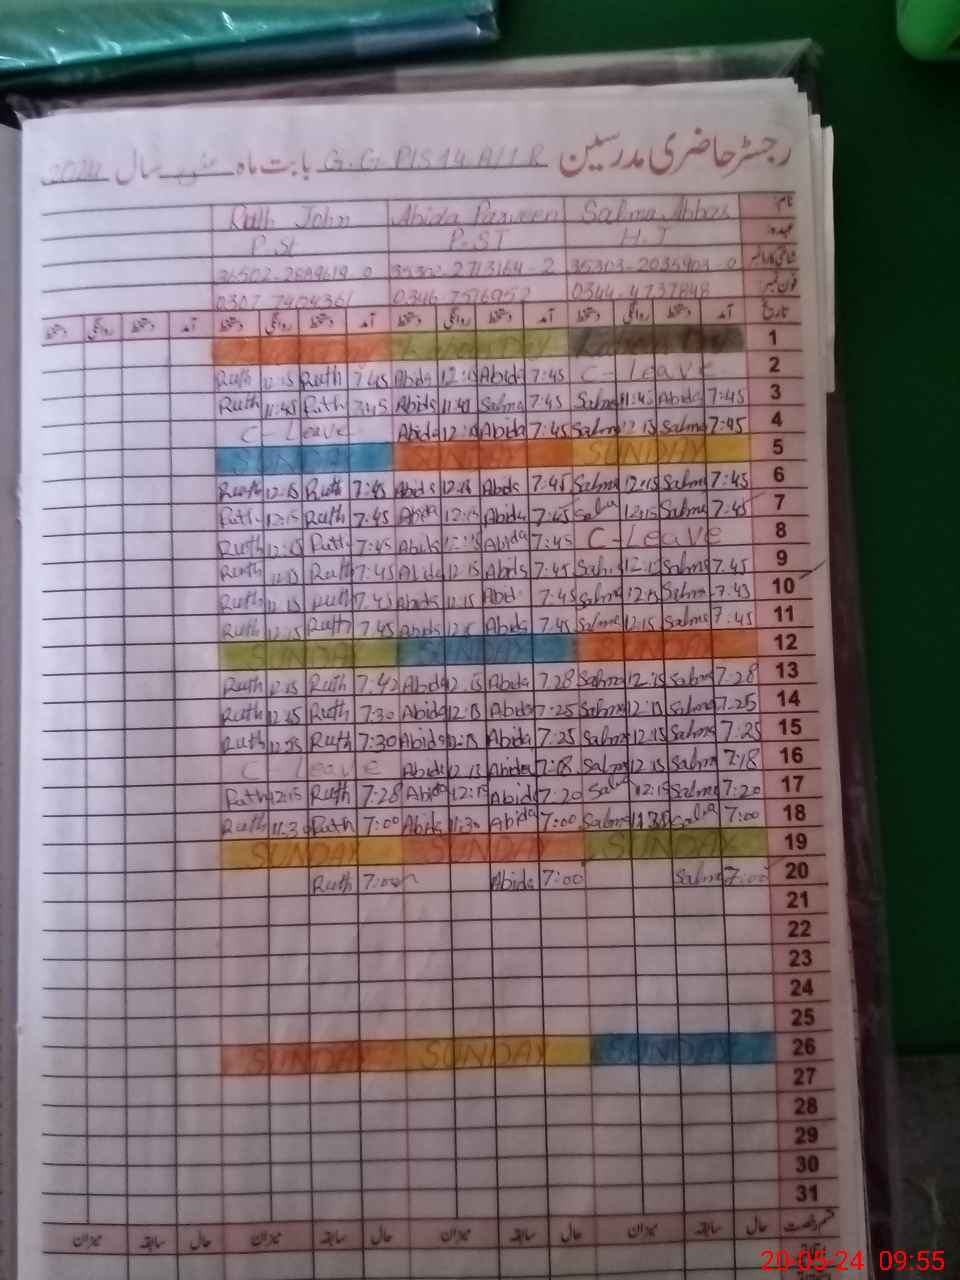 رجسٹر حاضری مدرسین G.G. P/S 14 A/1 R بابت ماہ مئی سال 2024
نام Salma Abbas Abida Parveen Ruth John
عہدہ H.T P.ST P.ST
35303-2035903-0 35302-2713164-2 36502-2889619-0
فون نمبر 0344-4737848 0346 7576952 0307 7404361
تاریخ آمد دستخط روانگی دستخط آمد دستخط روانگی دستخط آمد دستخط روانگی دستخط آمد دستخط روانگی دستخط
1 Labour Day Labour Day Labour Day
Ruth 12:15 Ruth 7:45 Abida Abida 7:45 C-Leave 2
Ruth 11:45 Ruth Abida 11:40 Salma 7:45 Salma Abida 7:45 3
C-Leave Abida Abida 7:45 Salma 12:15 Salma 7:45 4
SUNDAY SUNDAY SUNDAY 5
Ruth 12:15 Ruth 7:45 Abida 12:15 Abida 7:45 Salma 12:15 Salma 7:45 6
Ruth 12:15 Ruth 7:45 Abida 12:15 Abida 7:45 12:15 Salma 7:45 7
Ruth 12:15 Ruth 7:45 Abida Abida 7:45 C-Leave 8
Ruth 12:15 Ruth 7:45 Abida 12:15 Abida 7:45 Salma 7:45 9
Ruth 12:15 Ruth 7:45 Abida 12:15 Abid 7:45 Salma 12:15 Salma 7:43 10
Ruth 12:15 Ruth 7:45 Abida 12:15 Abida 7:45 Salma 12:15 Salma 7:45 11
SUNDAY SUNDAY SUNDAY 12
Ruth 12:15 Ruth 7:42 Abida 12:15 Abida 7:28 Salma 12:15 Salma 7:28 13
Ruth 12:15 Ruth 7:30 Abida 12:15 Abida 7:25 Salma 12:15 Salma 7:25 14
Ruth 12:15 Ruth 7:30 Abida 12:15 Abida 7:25 Salma 12:15 Salma 7:25 15
C-Leave Abida 12:15 Abida 7:18 Salma 12:15 Salma 7:18 16
Ruth 12:15 Ruth 7:28 Abida 12:15 Abida 7:20 Salma 12:15 Salma 7:20 17
Ruth 11:30 Ruth 7:00 Abida 11:30 Abida 7:00 Salma 11:30 7:00 18
SUNDAY SUNDAY SUNDAY 19
Ruth 7:00 Abida 7:00 Salma 7:00 20
21
22
23
24
25
SUNDAY SUNDAY SUNDAY 26
27
28
29
30
31
قسم رخصت حال سابقہ میزان حال سابقہ میزان حال سابقہ میزان حال سابقہ میزان
20-05-24 09:55